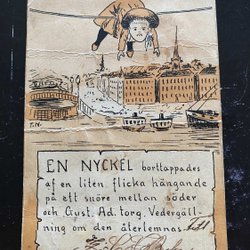 F.N.
EN NYCKEL borttappades
af en liten flicka hängande
på ett snöre mellan söder
och Gust. Ad. torg. Vedergäll-
ning om den återlemnas